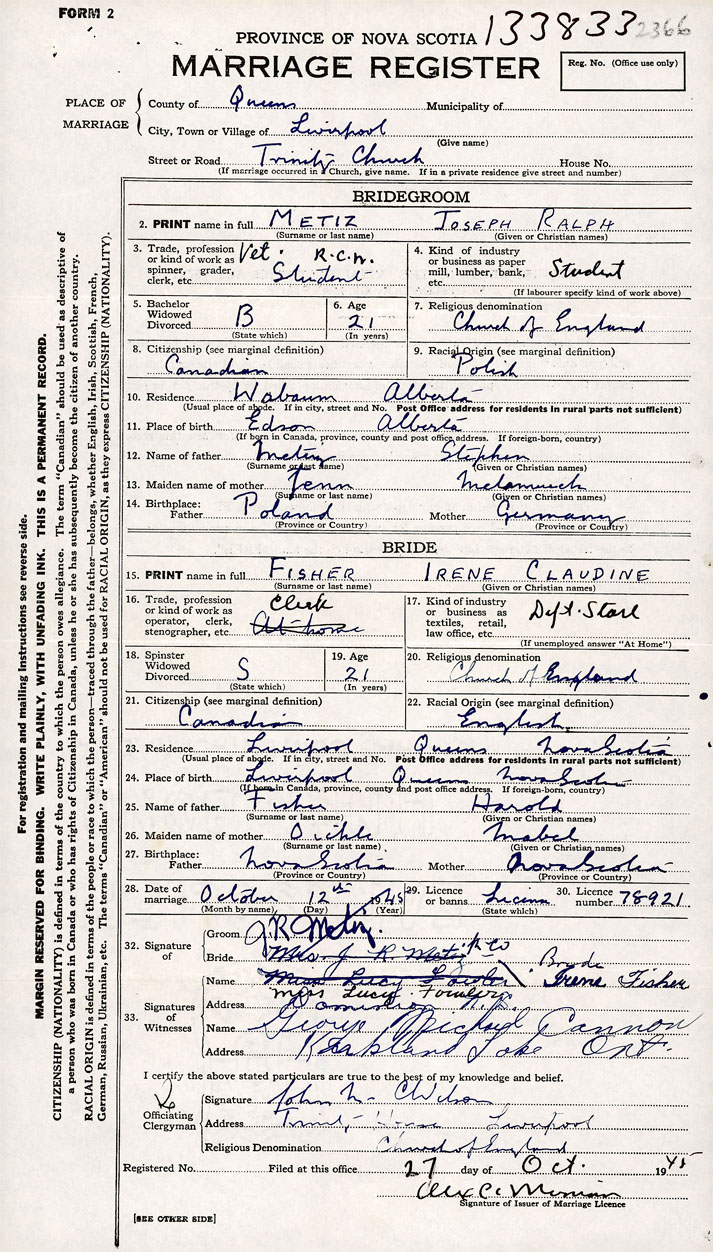 FORM 2
133833 2366
PROVINCE OF NOVA SCOTIA
MARRIAGE REGISTER
Reg. No. (Office use only)
PLACE OF MARRIAGE
County of Queens Municipality of
City, Town or Village of Liverpool
(Give name)
Street or Road Trinity Church House No.
(If marriage occurred in a Church, give name. If in a private residence give street and number)
BRIDEGROOM
2. PRINT name in full METIZ JOSEPH RALPH
(Surname or last name) (Given or Christian names)
3. Trade, profession or kind of work as spinner, grader, clerk, etc. Vet. R.C.N. Student
4. Kind of industry or business as paper mill, lumber, bank, etc. Student
(If labourer specify kind of work above)
5. Bachelor Widowed Divorced B
(State which)
6. Age 21
(In years)
7. Religious denomination
Church of England
8. Citizenship (see marginal definition)
Canadian
9. Racial Origin (see marginal definition)
Polish
10. Residence Wabaum Alberta
(Usual place of abode. If in city, street and No. Post Office address for residents in rural parts not sufficient)
11. Place of birth Edson Alberta
(If born in Canada, province, county and post office address. If foreign-born, country)
12. Name of father Metiz Stephen
(Surname or last name) (Given or Christian names)
13. Maiden name of mother
(Surname or last name) (Given or Christian names)
14. Birthplace: Father Poland Mother Germany
(Province or Country) (Province or Country)
BRIDE
15. PRINT name in full FISHER IRENE CLAUDINE
(Surname or last name) (Given or Christian names)
16. Trade, profession or kind of work as operator, clerk, stenographer, etc. Clerk At home
17. Kind of industry or business as textiles, retail, law office, etc. Dept. Store
(If unemployed answer "At Home")
18. Spinster Widowed Divorced S
(State which)
19. Age 21
(In years)
20. Religious denomination
Church of England
21. Citizenship (see marginal definition)
Canadian
22. Racial Origin (see marginal definition)
English
23. Residence Liverpool Queens Nova Scotia
(Usual place of abode. If in city, street and No. Post Office address for residents in rural parts not sufficient)
24. Place of birth Liverpool Queens Nova Scotia
(If born in Canada, province, county and post office address. If foreign-born, country)
25. Name of father Fisher Harold
(Surname or last name) (Given or Christian names)
26. Maiden name of mother Mabel
(Surname or last name) (Given or Christian names)
27. Birthplace: Father Nova Scotia Mother Nova Scotia
(Province or Country) (Province or Country)
28. Date of marriage October 12th 1945
(Month by name) (Day) (Year)
29. Licence or banns
(State which)
30. Licence number 78921
32. Signature of
Groom J R Metiz.
Bride Mrs. J. R. Metiz Bride Irene Fisher
33. Signatures of Witnesses
Name Miss Lucy
Miss Lucy
Address Dominion N.S.
Name George Michael Cannon
Address Kirkland Lake Ont.
I certify the above stated particulars are true to the best of my knowledge and belief.
Officiating Clergyman
Signature John
Address Trinity House Liverpool
Religious Denomination Church of England
Registered No. Filed at this office 27 day of Oct. 1945
Signature of Issuer of Marriage Licence
[SEE OTHER SIDE]
For registration and mailing instructions see reverse side.
MARGIN RESERVED FOR BINDING. WRITE PLAINLY, WITH UNFADING INK. THIS IS A PERMANENT RECORD.
CITIZENSHIP (NATIONALITY) is defined in terms of the country to which the person owes allegiance. The term "Canadian" should be used as descriptive of
a person who was born in Canada or who has rights of Citizenship in Canada, unless he or she has subsequently become the citizen of another country.
RACIAL ORIGIN is defined in terms of the people or race to which the person—traced through the father—belongs, whether English, Irish, Scottish, French,
German, Russian, Ukrainian, etc. The terms "Canadian" or "American" should not be used for RACIAL ORIGIN, as they express CITIZENSHIP (NATIONALITY).